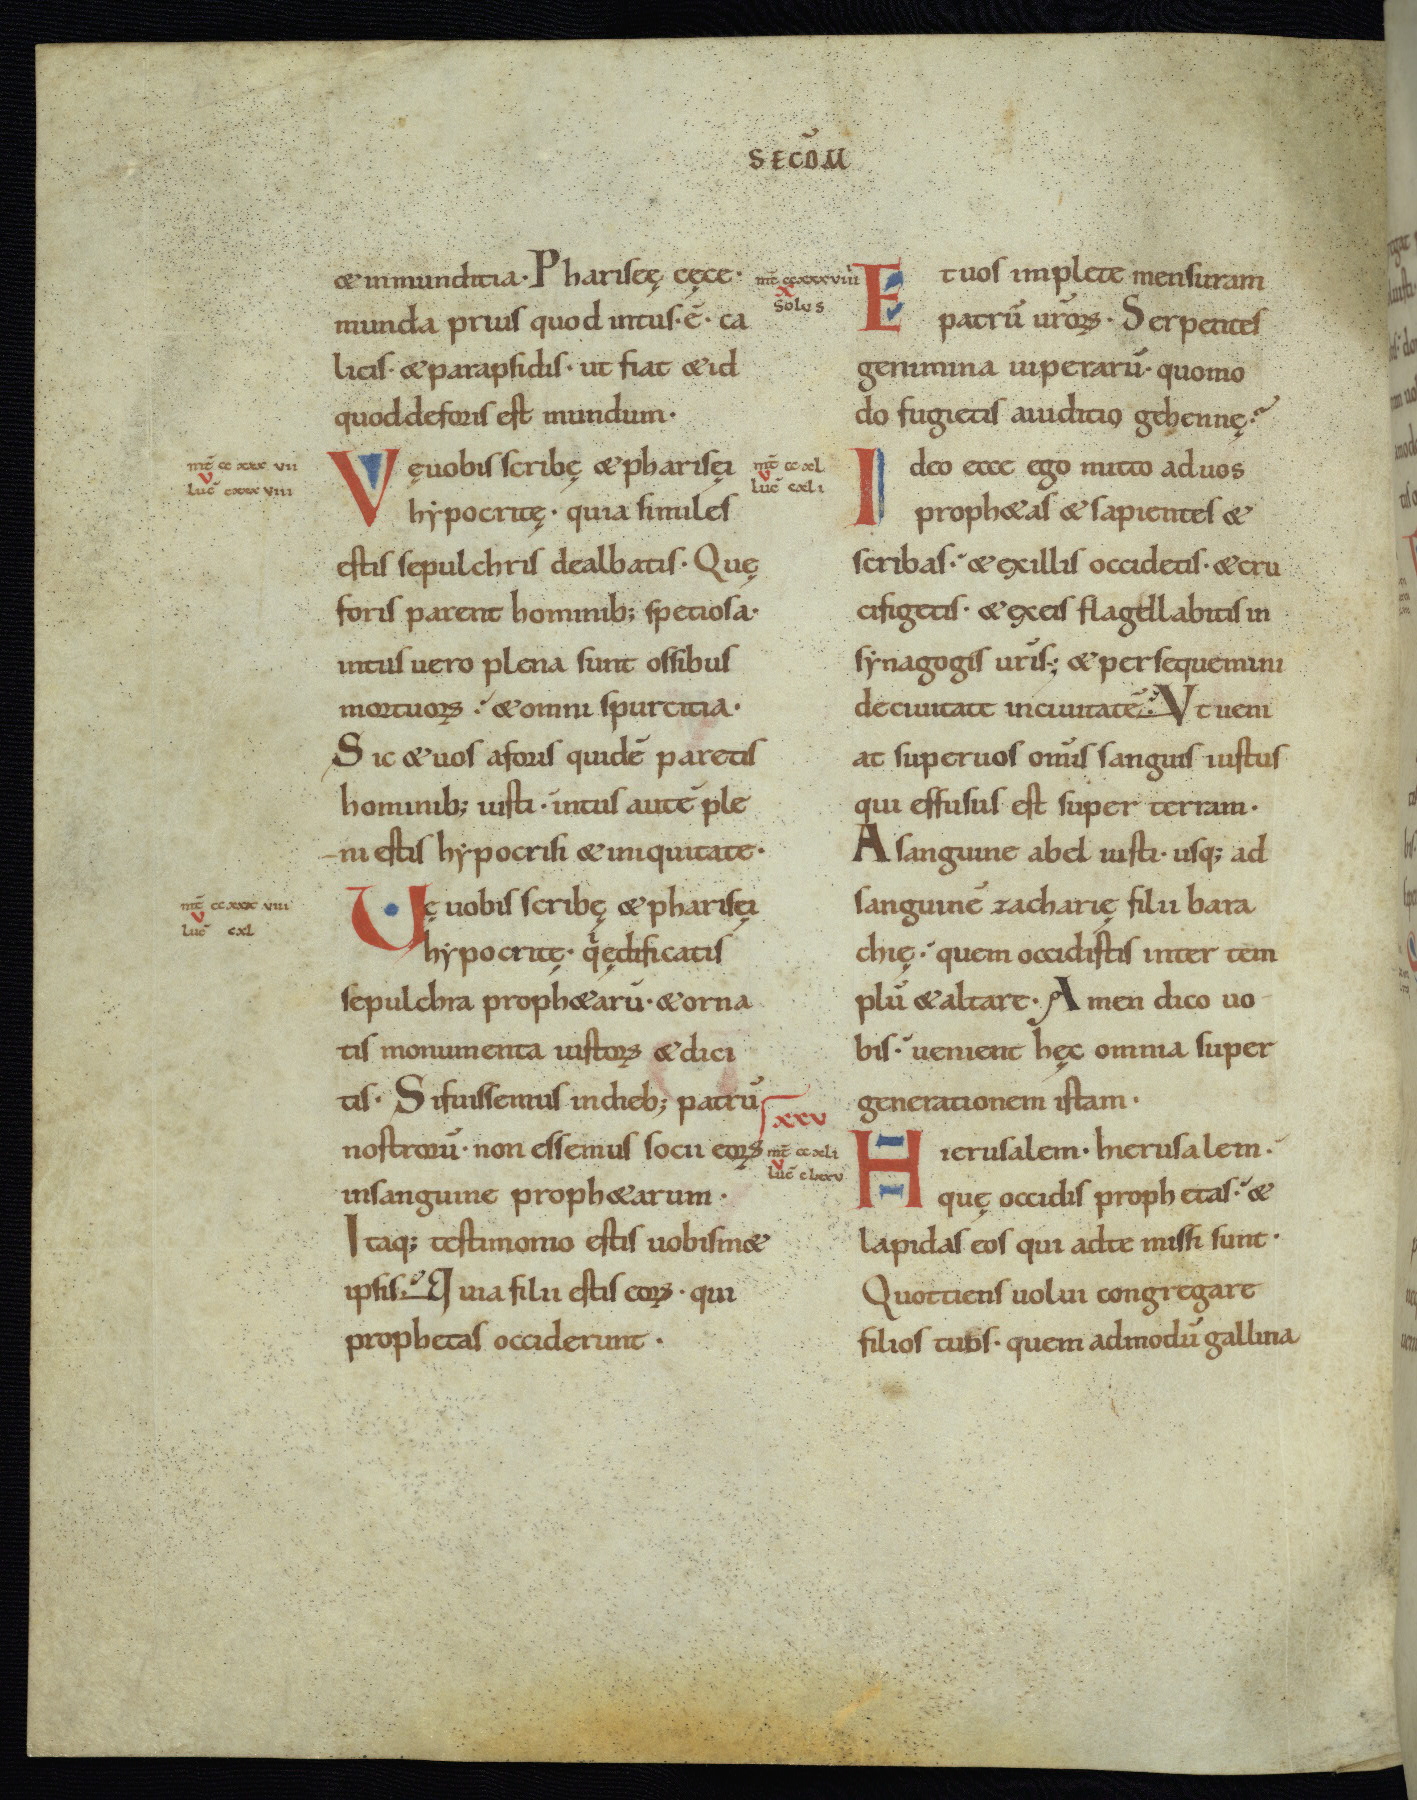 SECŪM
& inmunditia· Phariseę cęce·
munda prius quod intus·ē· ca
licis· & parapsidis· ut fiat & id
quod deforis est mundum·
mt̄ cc xxx vii
v
luc̄ cxxx viii
Vę uobis scribę & pharisęi
hẏpocritę· quia similes
estis sepulchris dealbatis· Quę
foris parent hominib; spetiosa·
intus uero plena sunt ossibus
mortuoꝝ · & omni spurcitia·
Sic & uos aforis quidē paretis
hominib; iusti · intus autē ple
ni estis hẏpocrisi & iniquitate·
mt̄ cc xxx viii
v
luc̄ cxl
Vę uobis scribę & pharisęi
hẏpocritę· qͥ ędificatis
sepulchra proph&arū· & orna
tis monumenta iustoꝝ & dici
tis· Si fuissemus in dieb; patrū
nostrorū· non essemus socii eoꝝ
in sanguine proph&arum ·
Itaq; testimonio estis uobism&
ipsis· Quia filii estis eoꝝ · qui
prophetas occiderunt ·
mt̄ ccxxxviiii
x
solus
Et uos implete mensuram
patrū urōꝝ · Serpentes
genimina uiperarū· quomo
do fugietis a iuditio gehennę·
mt̄ cc xl
v
luc̄ cxli
Ideo ecce ego mitto ad uos
proph&as & sapientes &
scribas· & ex illis occidetis· & cru
cifigetis· & ex eis flagellabitis in
sẏnagogis ur̄is; & persequemini
de ciuitate in ciuitatē· Vt ueni
at super uos om̄is sanguis iustus
qui effusus est super terram·
A sanguine abel iusti· usq; ad
sanguinē zacharię filii bara
chię· quem occidistis inter tem
plū & altare· Amen dico uo
bis· uenient hęc omnia super
generationem istam·
xxv
mt̄ cc xli
v
luc̄ clxxv
Hierusalem· hierusalem·
quę occidis prophetas· &
lapidas eos qui ad te missi sunt·
Quottiens uolui congregare
filios tuos· quem admodū gallina